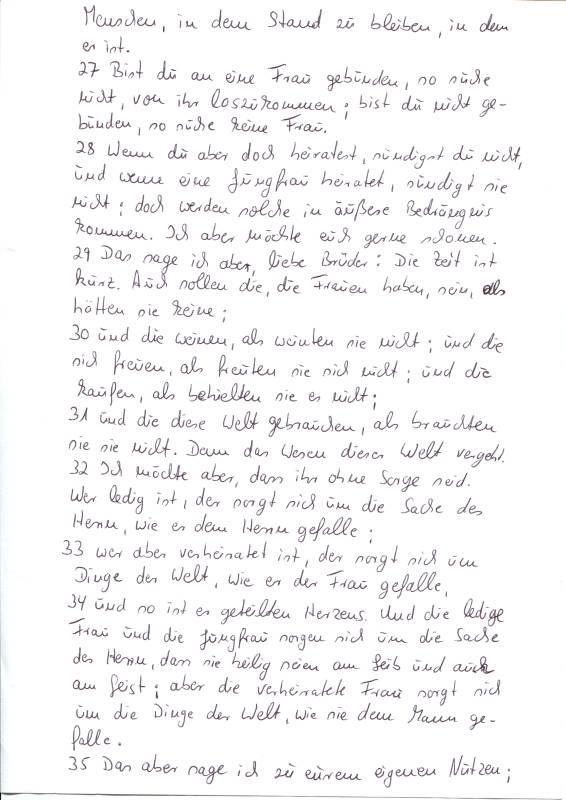 Menschen, in dem Stand zu bleiben, in dem
er ist.
27 Bist du an eine Frau gebunden, so suche
nicht, von ihr loszukommen; bist du nicht ge-
bunden, so suche keine Frau.
28 Wenn du aber doch heiratest, sündigst du nicht,
und wenn eine Jungfrau heiratet, sündigt sie
nicht; doch werden solche in äußere Bedrängnis
kommen. Ich aber möchte euch gerne schonen.
29 Das sage ich aber, liebe Brüder: Die Zeit ist
kurz. Auch sollen die, die Frauen haben, sein, als
hätten sie keine;
30 und die weinen, als weinten sie nicht; und die
sich freuen, als freuten sie sich nicht; und die
kaufen, als behielten sie es nicht;
31 und die diese Welt gebrauchen, als brauchten
sie sie nicht. Denn das Wesen dieser Welt vergeht.
32 Ich möchte aber, dass ihr ohne Sorge seid.
Wer ledig ist, der sorgt sich um die Sache des
Herrn, wie er dem Herrn gefalle;
33 wer aber verheiratet ist, der sorgt sich um
Dinge der Welt, wie er der Frau gefalle,
34 und so ist er geteilten Herzens. Und die ledige
Frau und die Jungfrau sorgen sich um die Sache
des Herrn, dass sie heilig seien am Leib und auch
am Geist; aber die verheiratete Frau sorgt sich
um die Dinge der Welt, wie sie dem Mann ge-
falle.
35 Das aber sage ich zu eurem eigenen Nutzen;